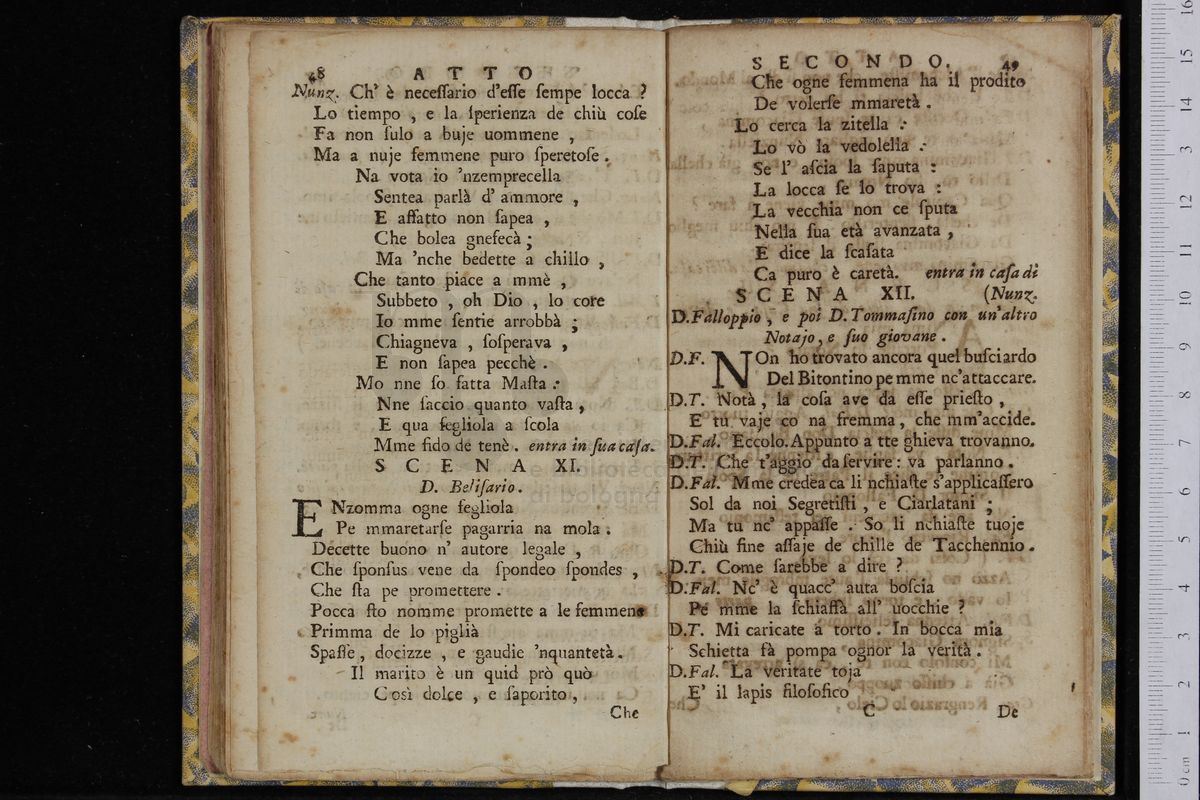 48 ATTO
Nunz. Ch' è neceſſario d'eſſe ſempe locca ?
Lo tiempo , e la ſperienza de chiù coſe
Fa non ſulo a buje uommene ,
Ma a nuje femmene puro ſperetoſe .
Na vota io 'nzemprecella
Sentea parlà d' ammore ,
E affatto non ſapea ,
Che bolea gnefecà ;
Ma 'nche bedette a chillo ,
Che tanto piace a mmè ,
Subbeto , oh Dio , lo core
Io mme ſentie arrobbà ;
Chiagneva , ſoſperava ,
E non ſapea pecchè .
Mo nne ſo fatta Maſta :
Nne ſaccio quanto vaſta ,
E qua fegliola a ſcola
Mme fido de tenè . entra in ſua caſa.
SCENA XI.
D. Beliſario.
ENzomma ogne fegliola
Pe mmaretarſe pagarria na mola .
Decette buono n' autore legale ,
Che ſponſus vene da ſpondeo ſpondes ,
Che ſta pe promettere .
Pocca ſto nomme promette a le femmene
Primma de lo piglià
Spaſſe , docizze , e gaudie 'nquantetà .
Il marito è un quid prò quò
Così dolce , e ſaporito ,
Che
SECONDO. 49
Che ogne femmena ha il prodito
De volerſe mmaretà .
Lo cerca la zitella :
Lo vò la vedolella :
Se l' aſcia la ſaputa :
La locca ſe lo trova :
La vecchia non ce ſputa
Nella ſua età avanzata ,
E dice la ſcaſata
Ca puro è caretà. entra in caſa di
SCENA XII. (Nunz.
D.Falloppio , e poi D.Tommaſino con un'altro
Notajo, e ſuo giovane .
D.F. NOn ho trovato ancora quel buſciardo
Del Bitontino pe mme nc'attaccare.
D.T. Notà , la coſa ave da eſſe prieſto ,
E tu vaje co na fremma , che mm'accide.
D.Fal. Eccolo. Appunto a tte ghieva trovanno.
D.T. Che t'aggio da ſervire : va parlanno .
D.Fal. Mme credea ca li nchiaſte s'applicaſſero
Sol da noi Segretiſti , e Ciarlatani ;
Ma tu nc' appaſſe . So li nchiaſte tuoje
Chiù fine aſſaje de chille de Tacchennio .
D.T. Come ſarebbe a dire ?
D.Fal. Nc' è quacc' auta boſcia
Pe mme la ſchiaffà all' uocchie ?
D.T. Mi caricate a torto . In bocca mia
Schietta fà pompa ognor la verità .
D.Fal. La veritate toja
E' il lapis filoſofico
C De